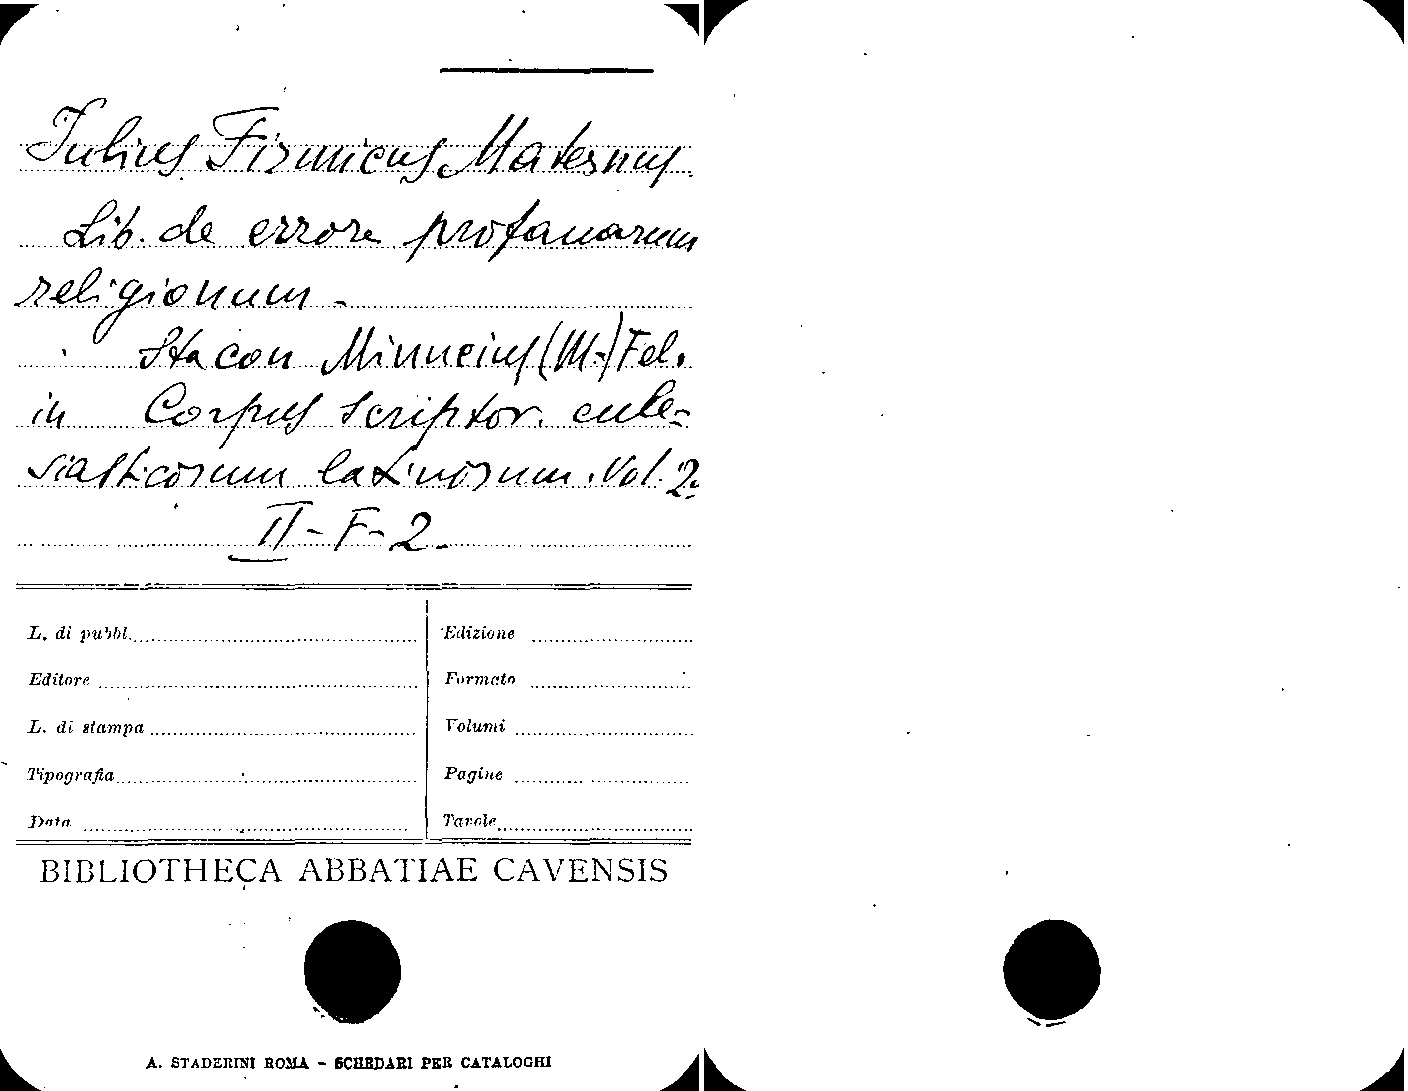 Iulius Firmicus Maternus.
Lib. de errore profanarum
religionum.
Sta con Minucius (M.) Fel.
in Corpus scriptor. eccle-
siasticorum latinorum. Vol. 2.
II-F-2.
L. di pubbl.
Edizione
Editore
Formato
L. di stampa
Volumi
Tipografia
Pagine
Data
Tavole
BIBLIOTHECA ABBATIAE CAVENSIS
A. STADERINI ROMA - SCHEDARI PER CATALOGHI